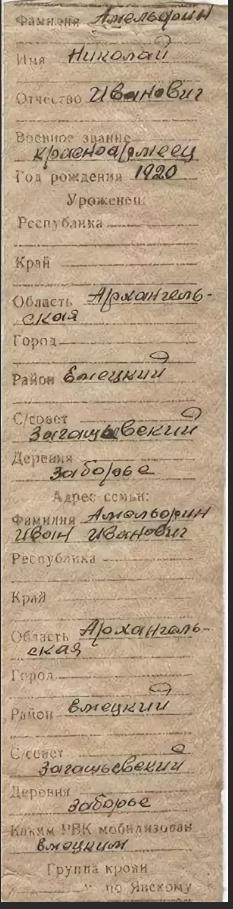 Фамилия Амельфрин
Имя Николай
Отчество Иванович
Военное звание
красноармеец
Год рождения 1920
Уроженец:
Республика
Край
Область Архангель-
ская
Город
Район Емецкий
С/совет
Загацьевский
Деревня
Заборье
Адрес семьи:
Фамилия
Иван Иванович
Республика
Край
Область Архангель-
ская
Город
Район Емецкий
С/совет
Загацьевский
Деревня
Заборье
Каким РВК мобилизован
Емецким
Группа крови
по Янскому